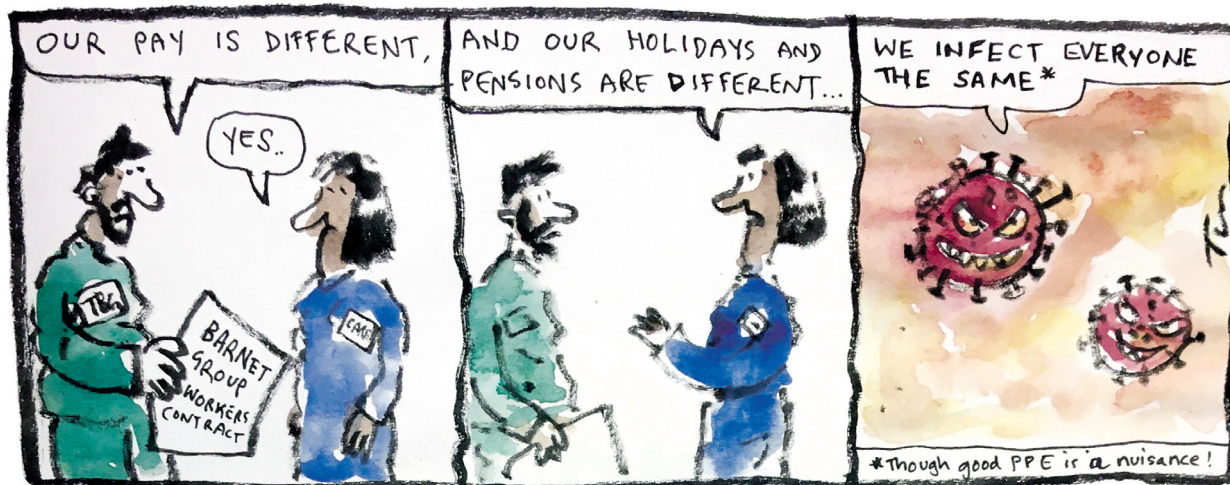 OUR PAY IS DIFFERENT,
YES..
TBG
BARNET
GROUP
WORKERS
CONTRACT
AND OUR HOLIDAYS AND
PENSIONS ARE DIFFERENT...
WE INFECT EVERYONE
THE SAME*
*Though good PPE is a nuisance!